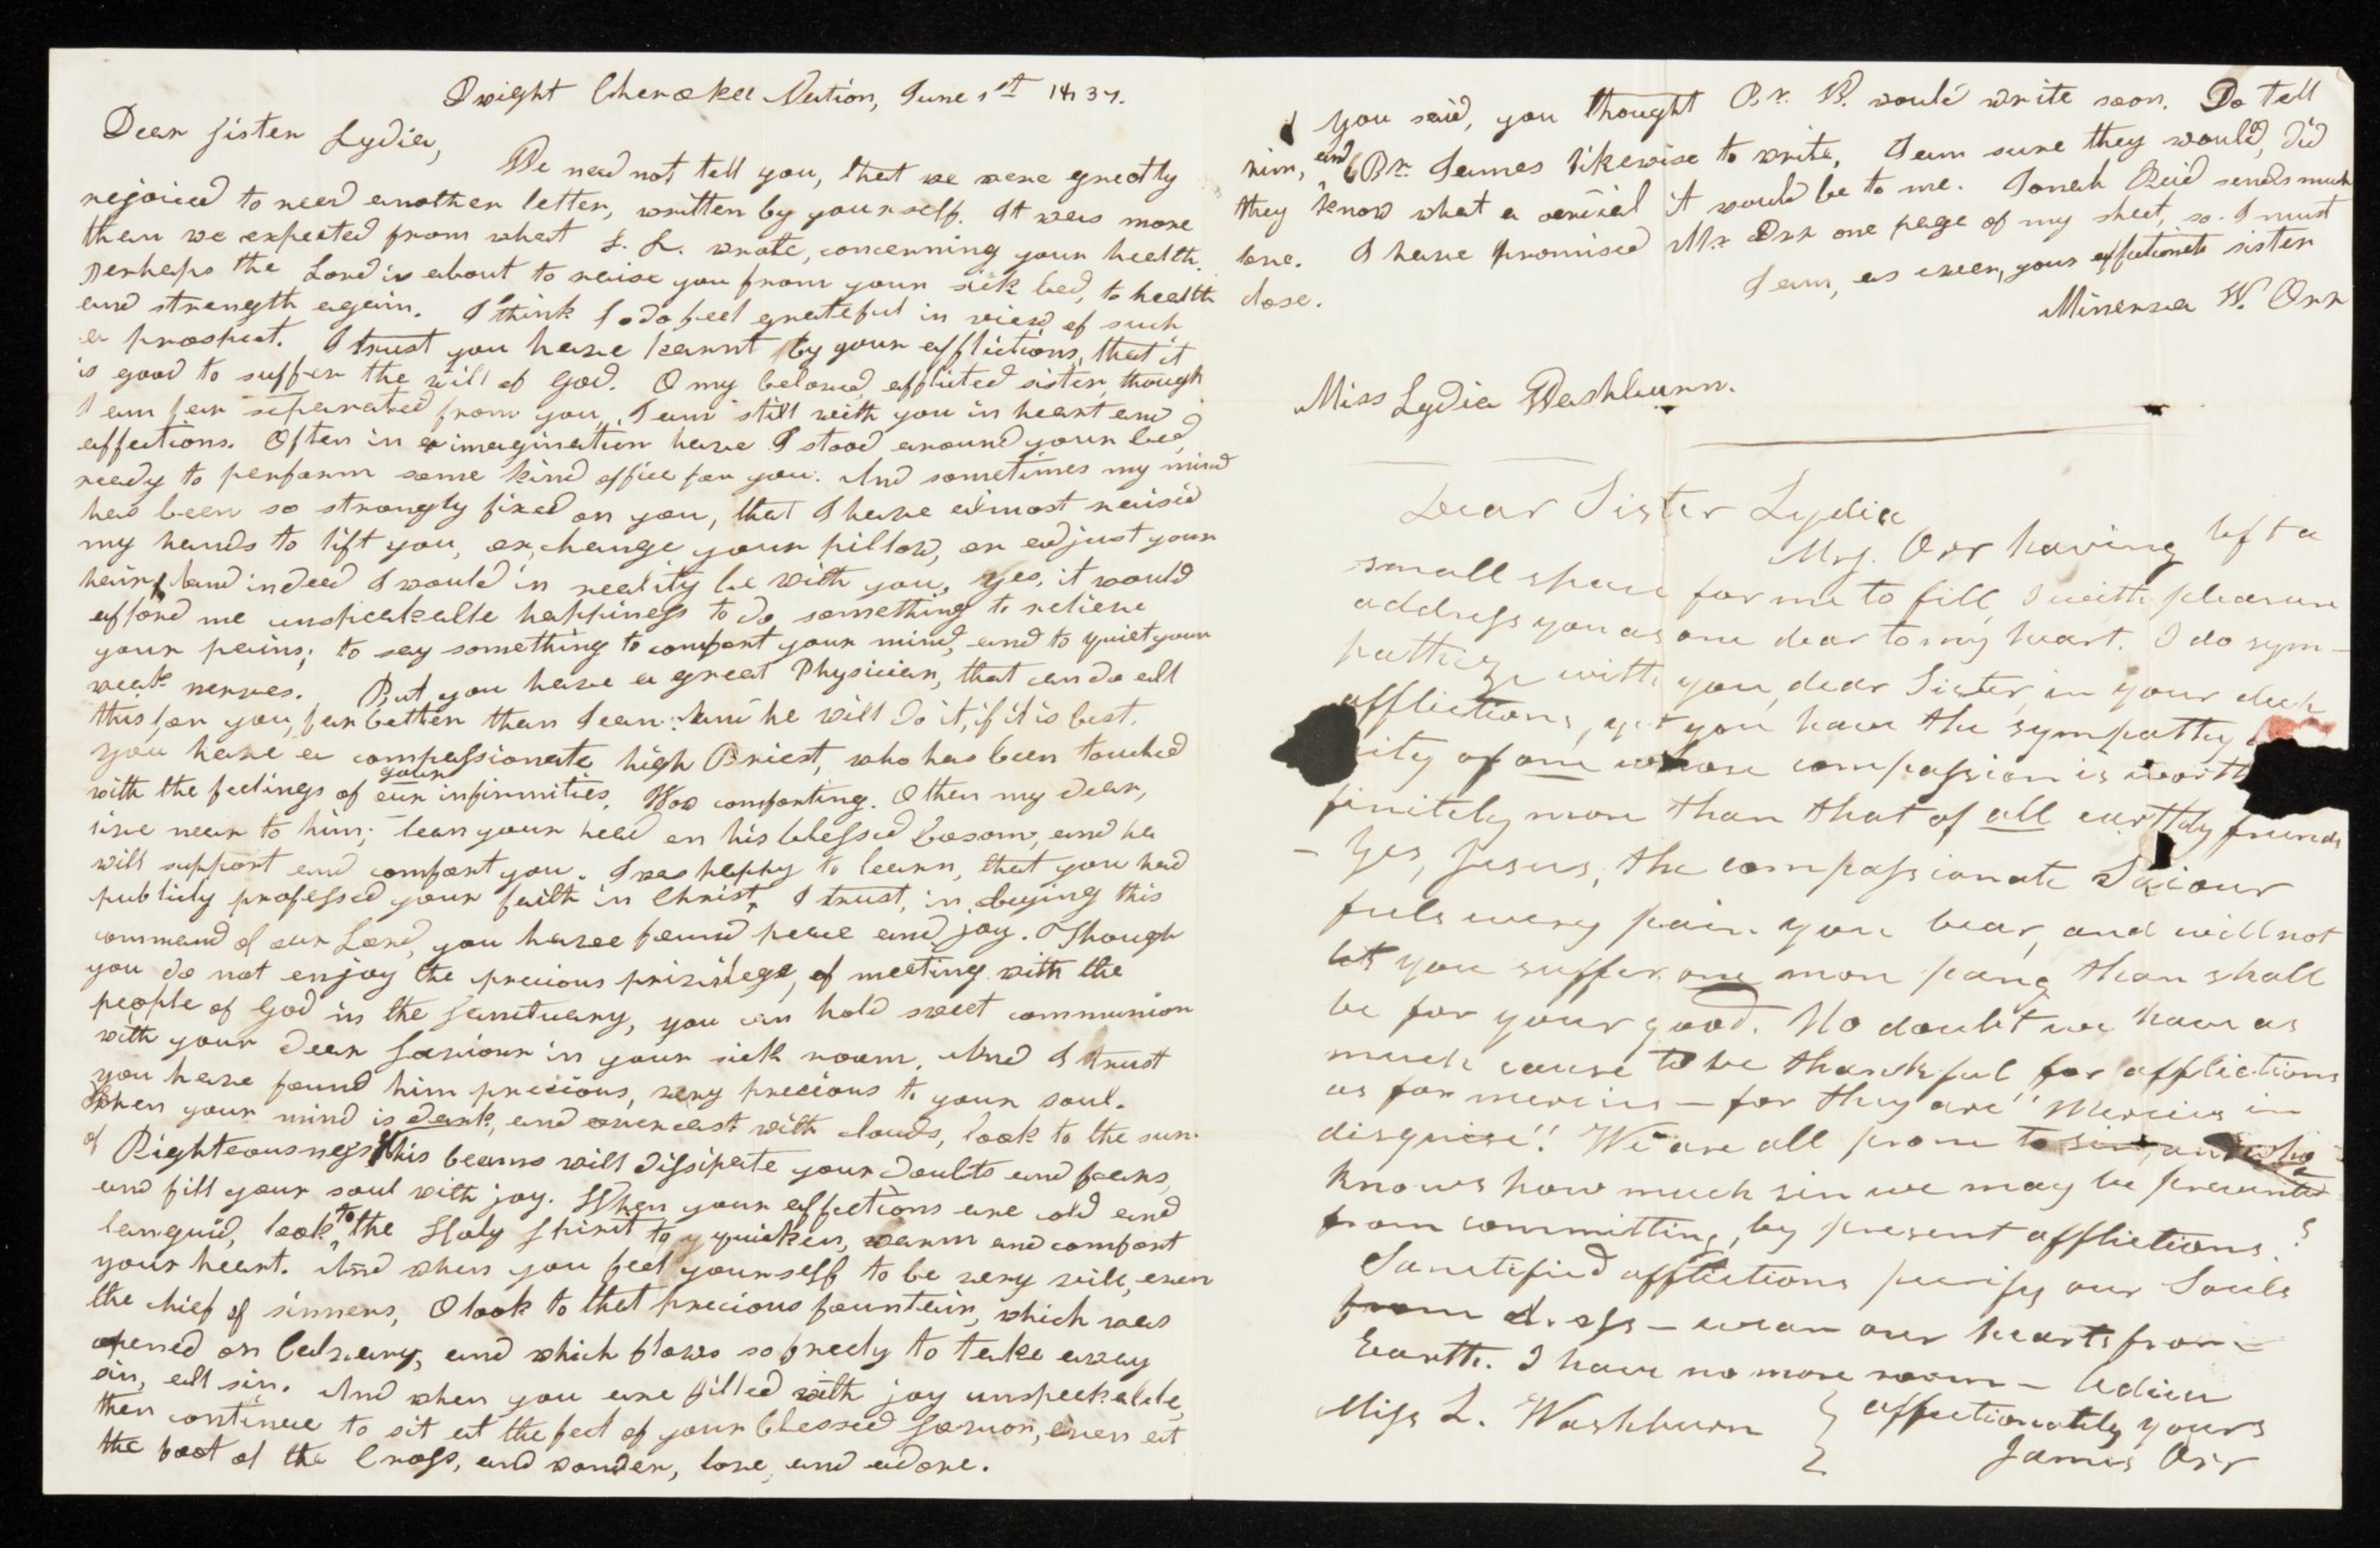 Dwight Cherokee Nation, June 1st 1837.
Dear Sister Lydia,
We need not tell you, that we were greatly
rejoiced to read another letter, written by yourself. It was more
than we expected from what S. L. wrote, concerning your health.
Perhaps the Lord is about to raise you from your sick bed, to health
and strength again. I think I do feel grateful in view of such
a prospect. I trust you have learnt by your afflictions, that it
is good to suffer the will of God. O my beloved, afflicted sister, though
I am far separated from you, I am still with you in heart and
affections. Often in imagination have I stood around your bed,
ready to perform some kind office for you. And sometimes my mind
has been so strongly fixed on you, that I have almost raised
my hands to lift you, or change your pillow, or adjust your
hair, and indeed I would in reality be with you, yes, it would
afford me unspeakable happiness to do something to relieve
your pains; to say something to comfort your mind, and to quiet your
weak nerves. But you have a great Physician, that can do all
this for you, far better than I can: and he will do it, if it is best.
You have a compassionate high Priest, who has been touched
with the feelings of our your infirmities. How comforting. O then my dear,
live near to him; lean your head on his blessed bosom, and he
will support and comfort you. I was happy to learn, that you had
publicly professed your faith in Christ, I trust, in obeying this
command of our Lord, you have found peace and joy. Though
you do not enjoy the precious privilege, of meeting with the
people of God in the Sanctuary, you can hold sweet communion
with your dear Saviour in your sick room. And I trust
you have found him precious, very precious to your soul.
When your mind is dark, and overcast with clouds, look to the sun
of Righteousness, his beams will dissipate your doubts and fears,
and fill your soul with joy. When your affections are cold and
languid, look to the Holy Spirit to quicken, warm and comfort
your heart. And when you feel yourself to be very vile, even
the chief of sinners, O look to that precious fountain, which was
opened on Calvary, and which flows so freely to take away
sin, all sin. And when you are filled with joy unspeakable,
then continue to sit at the feet of your blessed Savior, even at
the foot of the Cross, and wonder, love, and adore.
You said, you thought Br. B. would write soon. Do tell
him, and Br. James likewise to write. I am sure they would, did
they know what a it would be to me. Jonah Reid sends much
love. I have promised Mr. Orr one page of my sheet, so I must
close.
I am, as ever, your affectionate sister
Minerva W. Orr
Miss Lydia Washburn.
Dear Sister Lydia
Mrs. Orr having left a
small space for me to fill, I with pleasure
address you as one dear to my heart. I do sym-
pathize with you, dear Sister, in your deep
afflictions, yet you have the sympathy
ity of one whose compassion is worth
finitely more than that of all earthly friends
- Yes, Jesus, the compassionate Saviour
feels every pain you bear, and will not
let you suffer one more pang than shall
be for your good. No doubt we have as
much cause to be thankful for afflictions
as for mercies - for they are "Mercies in
disguise"! We are all prone to sin, and who
knows how much sin we may be prevented
from committing, by present afflictions?
Sanctified afflictions purify our Souls
from dross - wean our hearts from
Earth. I have no more room - Adieu
Miss L. Washburn } affectionately yours
James Orr